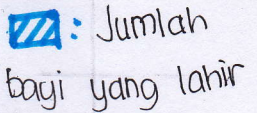 : Jumlah
bayi yang lahir